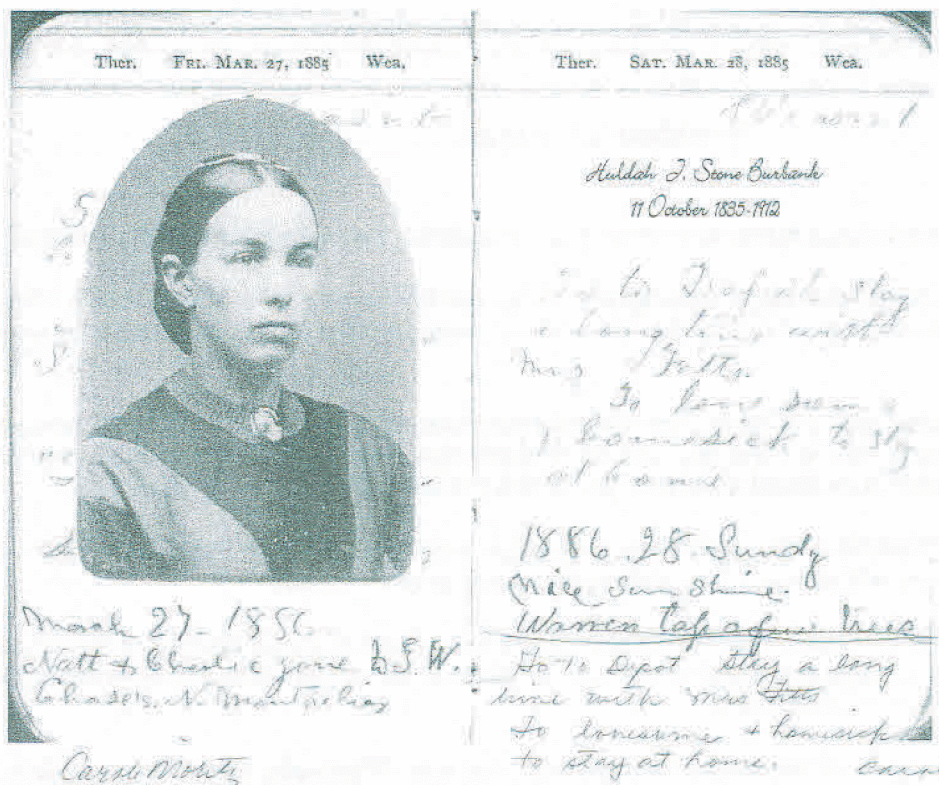 Ther. FRI. MAR. 27, 1885 Wea.
March 27 - 1886
Natt & Charlie gone to G. W.
Chase's N. Montpelier
Ther. SAT. MAR. 28, 1885 Wea.
Huldah T. Stone Burbank
11 October 1835-1912
to Depot stay
a long time with
Mrs Fitts
To lonesome
& homesick to stay
at home
1886 28 Sundy
Nice Sun Shine.
tap a few trees
Go to Depot stay a long
time with Mrs Fitts
To lonesome & homesick
to stay at home.
Carole Moritz